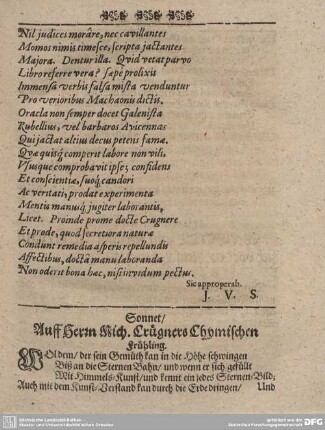 Nil judices morâre, nec cavillantes
Momos nimis timesce, scripta jactantes
Majora. Dentur illa. Qvid vetat parvo
Libro referre vera? sæpè prolixis
Immensâ verbis falsa mista venduntur
Pro verioribus Machaonis dictis.
Oracla non semper docet Galenista
Rubellius, vel barbaros Avicennas
Qui jactat altius decus petens famæ.
Qvæ quisq́; comperit labore non vili,
Vsuque comprobavit ipse; confidens
Et conscientiæ, suoq́; candori
Ac veritati, prodat experimenta
Mentis manuúq; jugiter laborantis,
Licet. Proinde prome docte Crugnere
Et prode, quod secretiora naturæ
Condunt remedia asperis repellundis
Affectibus, doctâ manu laboranda
Non oderit bona hæc, nisi invidum pectus.
Sic approperab.
J. V. S.
Sonnet/
Auff Herrn Mich. Crügners Chymischen
Frühling.
WOl dem/ der sein Gemüth kan in die Höhe schwingen
Biß an die Sternen Bahn/ und wenn er sich gefüllt
Mit Himmels-Kunst/ und kennt ein jedes Sternen-Bild;
Auch mit dem Kunst-Verstand kan durch die Erde dringen/
Und